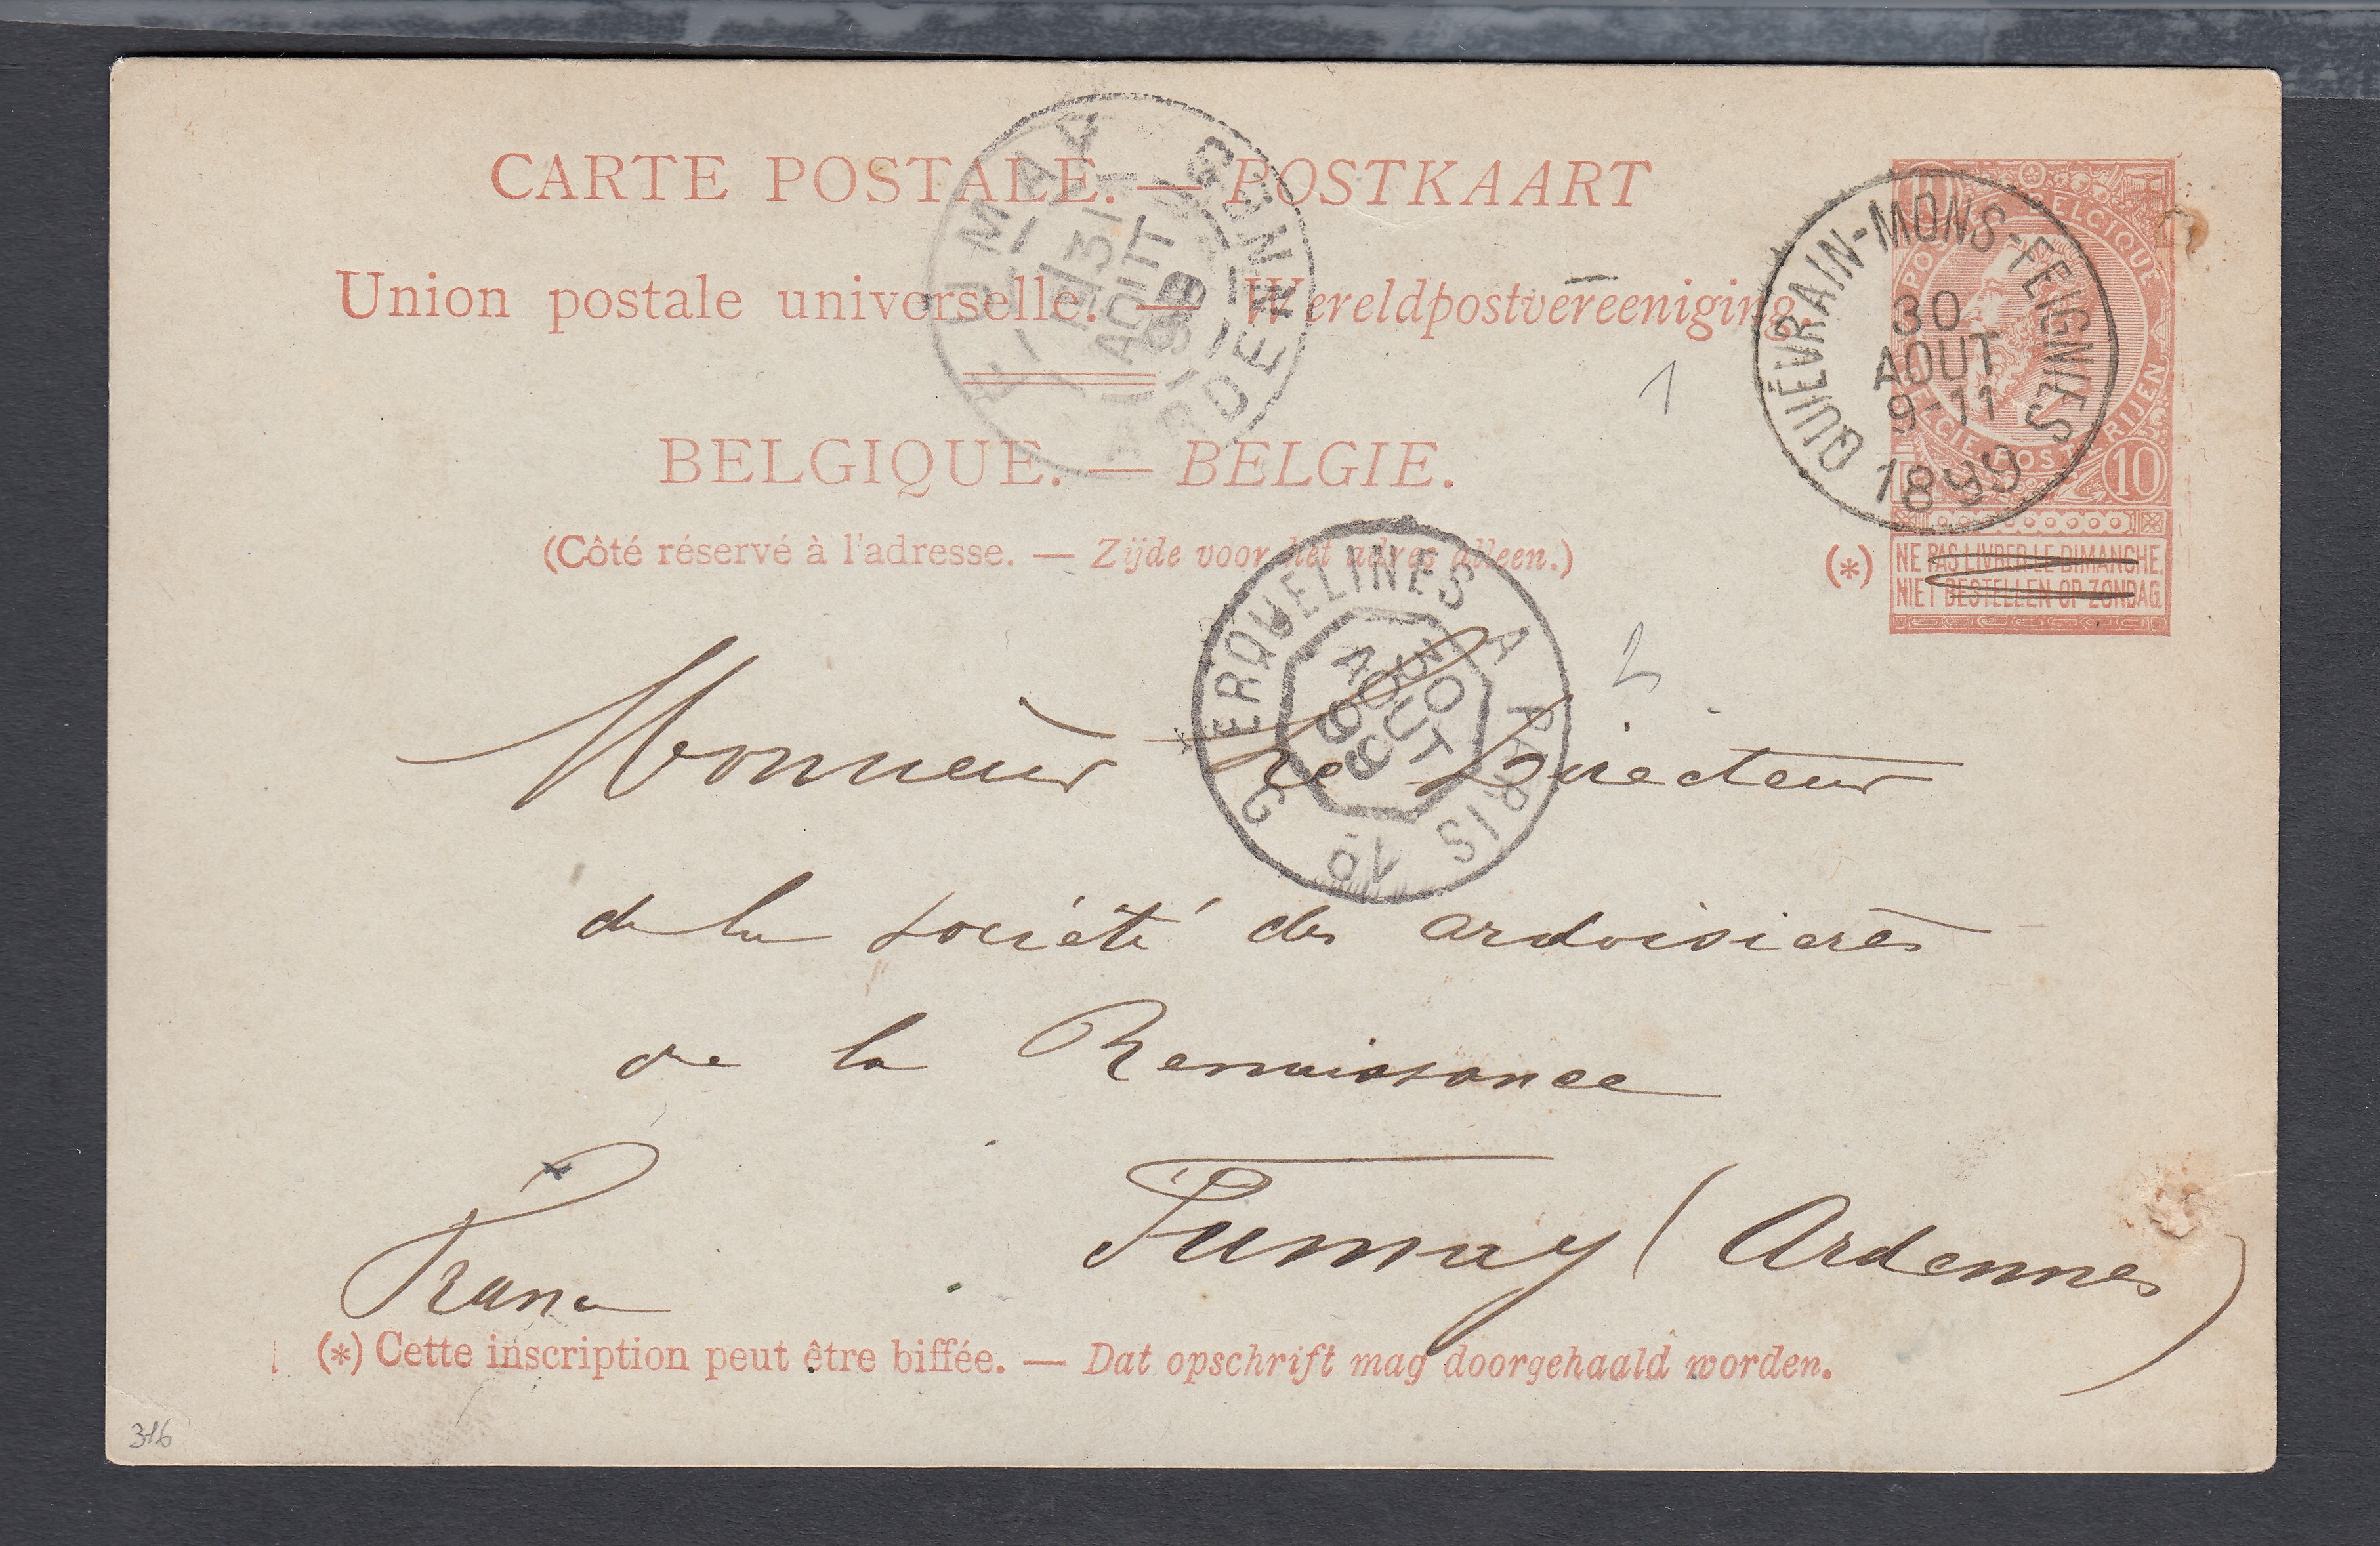 CARTE POSTALE. — POSTKAART
Union postale universelle. — Wereldpostvereeniging.
BELGIQUE. — BELGIE.
(Côté réservé à l'adresse. — Zijde voor het adres alleen.)
FUMAY
31
AOUT
99
ARDENNES
QUIÉVRAIN-MONS-FEIGNIES
30
AOUT
9-11
1899
10
BELGIQUE
POST
RIJEN
10
(*)
NE PAS LIVRER LE DIMANCHE.
NIET BESTELLEN OP ZONDAG.
1
2
ERQUELINES A PARIS
30
AOUT
99
Monsieur le Directeur
de la société des ardoisières
de la Renaissance
Fumay (Ardennes)
France
(*) Cette inscription peut être biffée. — Dat opschrift mag doorgehaald worden.
316